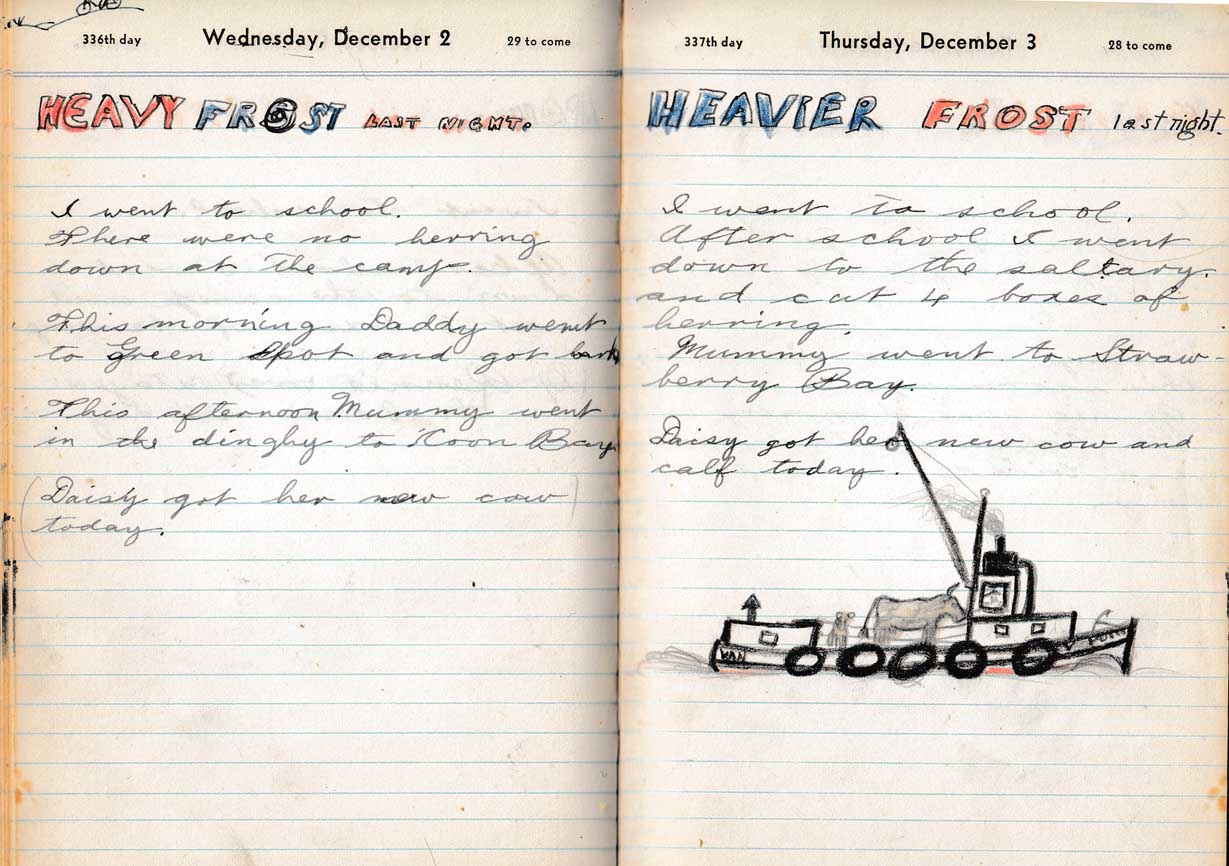 336th day Wednesday, December 2 29 to come
HEAVY FROST LAST NIGHT.
I went to school.
There were no herring
down at the camp.
This morning Daddy went
to Green Spot and got bark
This afternoon Mummy went
in the dinghy to Coon Bay
(Daisy got her new cow)
today.
337th day Thursday, December 3 28 to come
HEAVIER FROST last night.
I went to school.
After school I went
down to the saltary.
and cut 4 boxes of
herring.
Mummy went to Straw-
berry Bay.
Daisy got her new cow and
calf today.
VAN